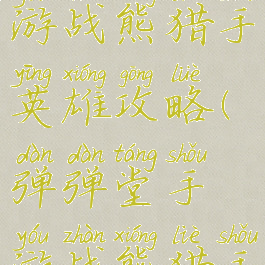 游战熊猎手
yīng xióng gōng lüè
英雄攻略(
dàn dàn táng shǒu
弹弹堂手
yóu zhàn xióng liè shǒu
游战熊猎手